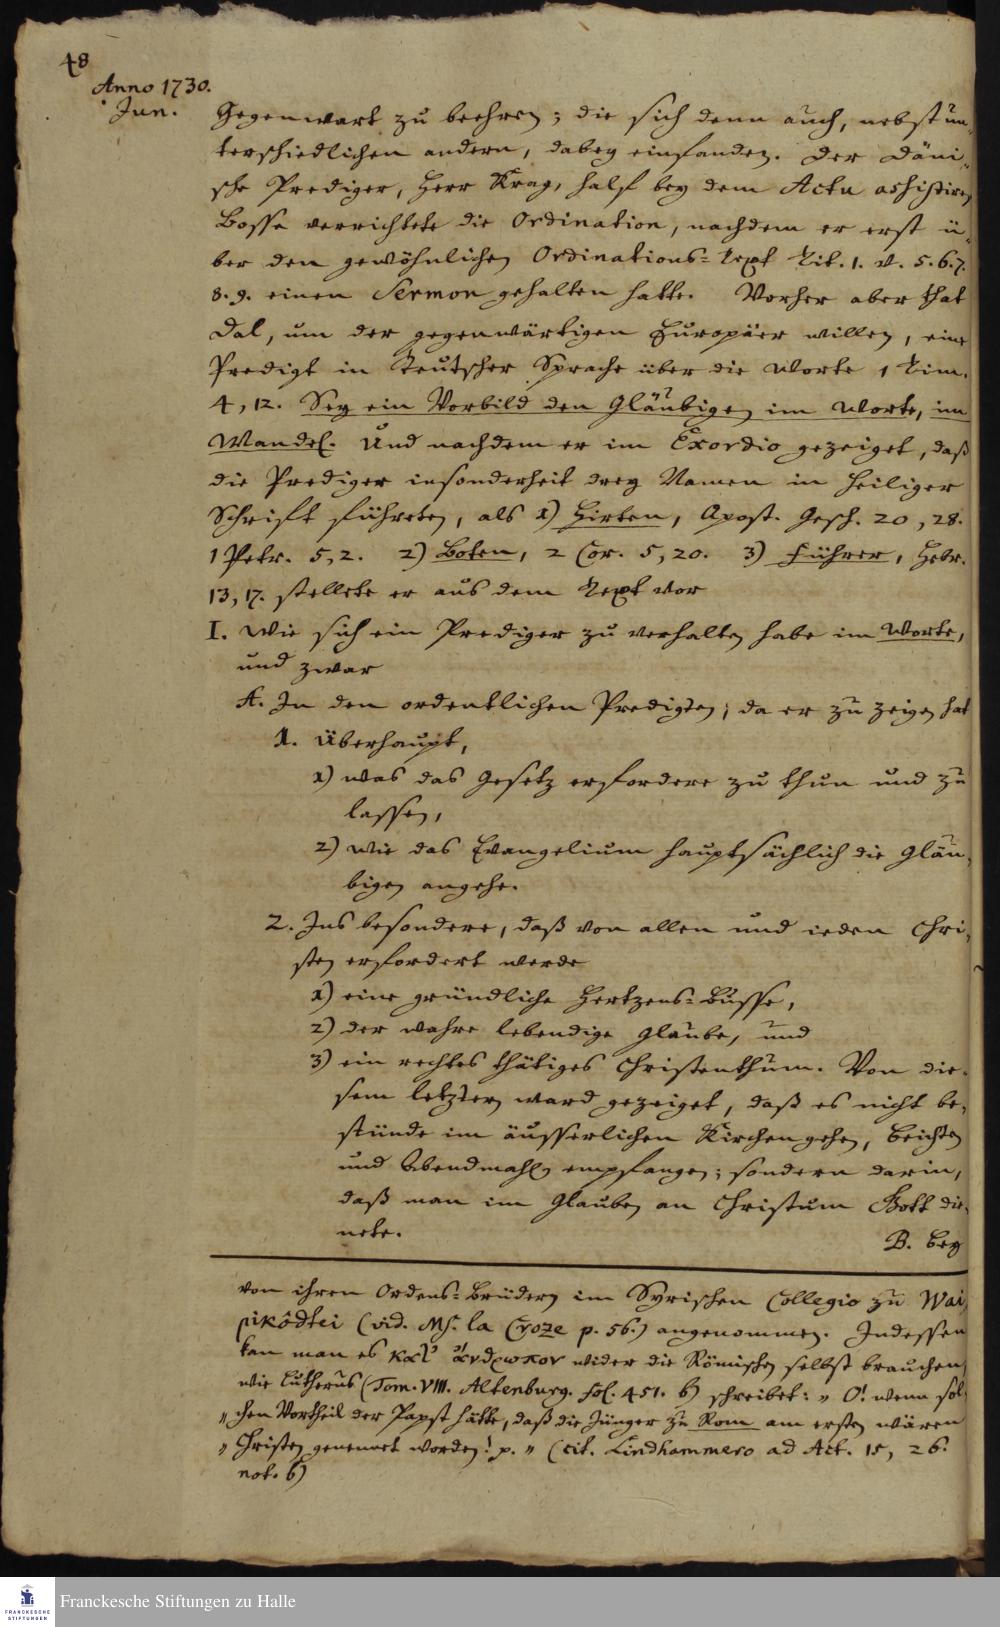 48
Anno 1730.
Jun.
Gegenwart zu beehren; die sich denn auch, nebst un-
terschiedlichen andern, dabey einfanden. Der Däni-
sche Prediger, Herr Krag, half bey dem Actu assistiren
Bosse verrichtete die Ordination, nachdem er erst ü-
ber den gewöhnlichen Ordinations-Text Tit. 1. v. 5. 6. 7.
8. 9. einen Sermon gehalten hatte. Vorher aber that
Dal, um der gegenwärtigen Europäer willen, eine
Predigt in Teutscher Sprache über die Worte 1 Tim.
4, 12. Sey ein Vorbild den Gläubigen im Worte, im
Wandel. Und nachdem er im Exordio gezeiget, daß
die Prediger insonderheit drey Namen in Heiliger
Schrift führeten, als 1) Hirten, Apost. Gesch. 20, 28.
1 Petr. 5, 2. 2) Boten, 2 Cor. 5, 20. 3) Führer, Hebr.
13, 17. stellete er aus dem Text vor
I. Wie sich ein Prediger zu verhalten habe im Worte,
und zwar
A. In den ordentlichen Predigten; da er zu zeigen hat
1. Überhaupt,
1) was das Gesetz erfordere zu thun und zu
lassen,
2) wie das Evangelium hauptsächlich die Gläu-
bigen angehe.
2. Ins besondere, daß von allen und ieden Chri-
sten erfordert werde
1) eine gründliche Hertzens-Busse,
2) der wahre lebendige Glaube, und
3) ein rechtes thätiges Christenthum. Von die-
sem letztern ward gezeiget, daß es nicht be-
stünde im äusserlichen Kirchengehen, Beichten
und Abendmahl empfangen; sondern darin,
daß man im Glauben an Christum Gott die-
nete.
B. Bey
von ihren Ordens-Brüdern im Syrischen Collegio zu Wai-
pikôdtei (vid. MS. la Croze p. 56.) angenommen. Indessen
kan man es κατ' ἄνθρωπον wider die Römischen selbst brauchen,
wie Lutherus (Tom. VIII. Altenburg. fol. 451. b) schreibet: „ O! wenn sol-
„ chen Vortheil der Papst hätte, daß die Jünger zu Rom am ersten wären
„ Christen genennet worden! p. „ (cit. Lindhammero ad Act. 15, 26.
not. b)
Franckesche Stiftungen zu Halle
FRANCKESCHE
STIFTUNGEN